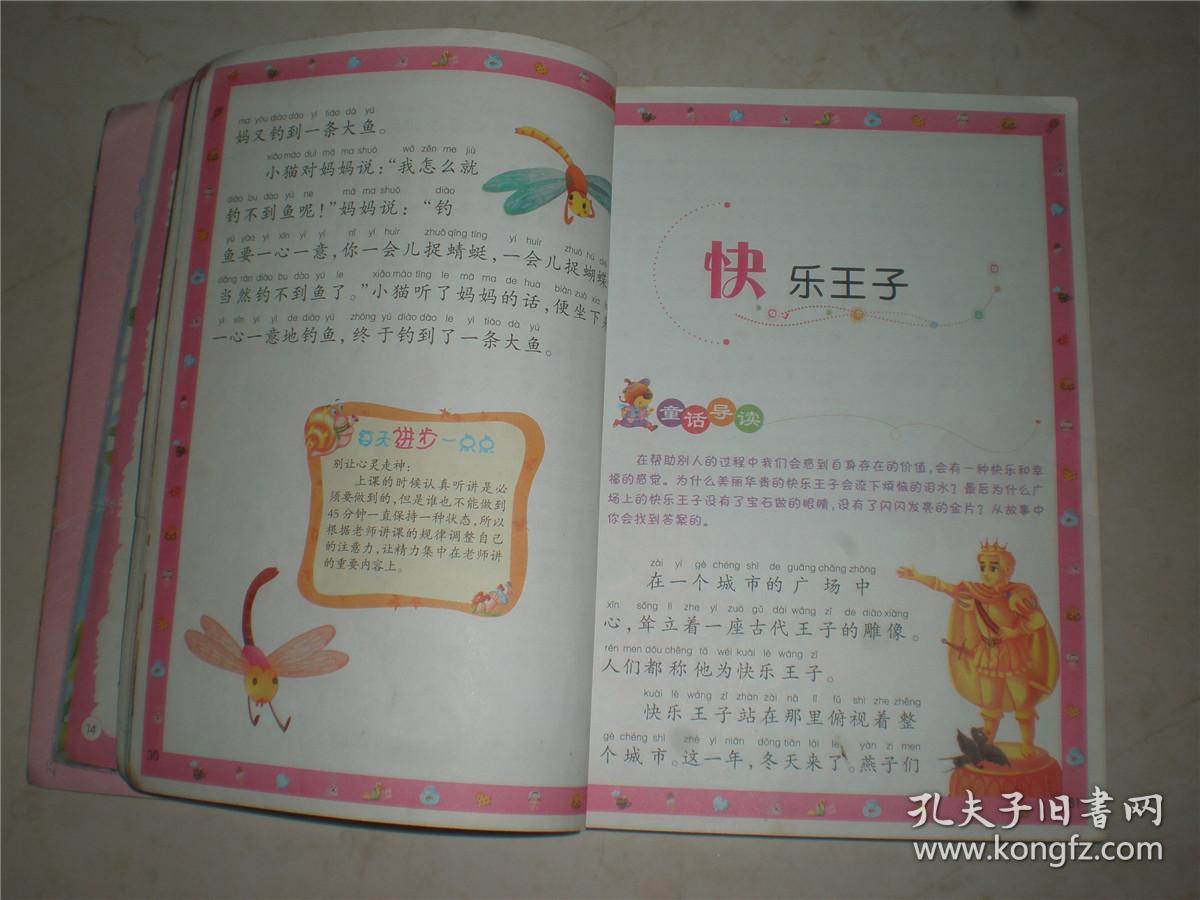 mā yòu diào dào yì tiáo dà yú
妈又钓到一条大鱼。
xiǎo māo duì mā ma shuō wǒ zěn me jiù
小猫对妈妈说：“我怎么就
diào bu dào yú ne mā ma shuō diào
钓不到鱼呢！”妈妈说：“钓
yú yào yì xīn yí yì nǐ yí huìr zhuō qīng tíng yí huìr zhuō hú dié
鱼要一心一意，你一会儿捉蜻蜓，一会儿捉蝴蝶
dāng rán diào bu dào yú le xiǎo māo tīng le mā ma de huà biàn zuò xià
当然钓不到鱼了。”小猫听了妈妈的话，便坐下
yì xīn yí yì de diào yú zhōng yú diào dào le yì tiáo dà yú
一心一意地钓鱼，终于钓到了一条大鱼。
每天进步一点点
别让心灵走神：
上课的时候认真听讲是必
须要做到的，但是谁也不能做到
45分钟一直保持一种状态，所以
根据老师讲课的规律调整自己
的注意力，让精力集中在老师讲
的重要内容上。
14
30
快乐王子
童话导读
在帮助别人的过程中我们会感到自身存在的价值，会有一种快乐和幸
福的感觉。为什么美丽华贵的快乐王子会流下烦恼的泪水？最后为什么广
场上的快乐王子没有了宝石做的眼睛，没有了闪闪发亮的金片？从故事中
你会找到答案的。
zài yí gè chéng shì de guǎng chǎng zhōng
在一个城市的广场中
xīn sǒng lì zhe yí zuò gǔ dài wáng zǐ de diāo xiàng
心，耸立着一座古代王子的雕像。
rén men dōu chēng tā wéi kuài lè wáng zǐ
人们都称他为快乐王子。
kuài lè wáng zǐ zhàn zài nà lǐ fǔ shì zhe zhěng
快乐王子站在那里俯视着整
gè chéng shì zhè yì nián dōng tiān lái le yàn zi men
个城市。这一年，冬天来了。燕子们
孔夫子旧书网
www.kongfz.com